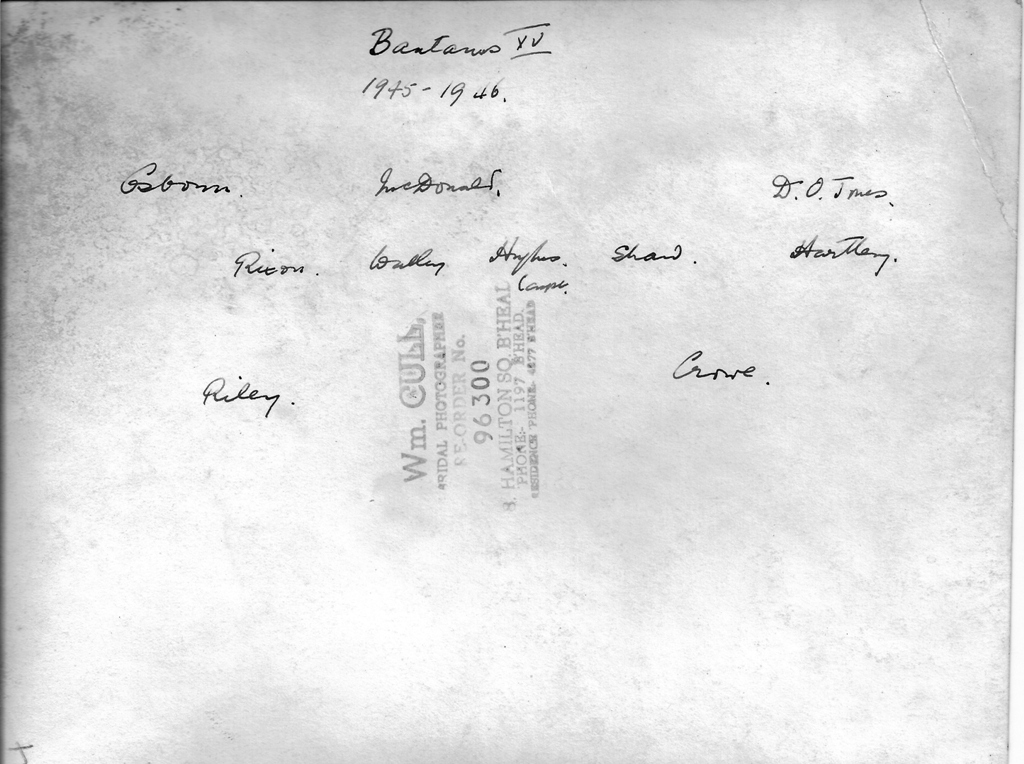 Bantams XV
1945-1946.
Osborn. McDonald. D.O. Jones.
Rixon. Walley Hughes. Shaw. Hartley.
Riley. Crowe.
Wm. CULL.
BRIDAL PHOTOGRAPHER
RE-ORDER No.
96300
8. HAMILTON SQ. B'HEAD
PHONE:- 1197 B'HEAD.
RESIDENCE PHONE- 4677 B'HEAD